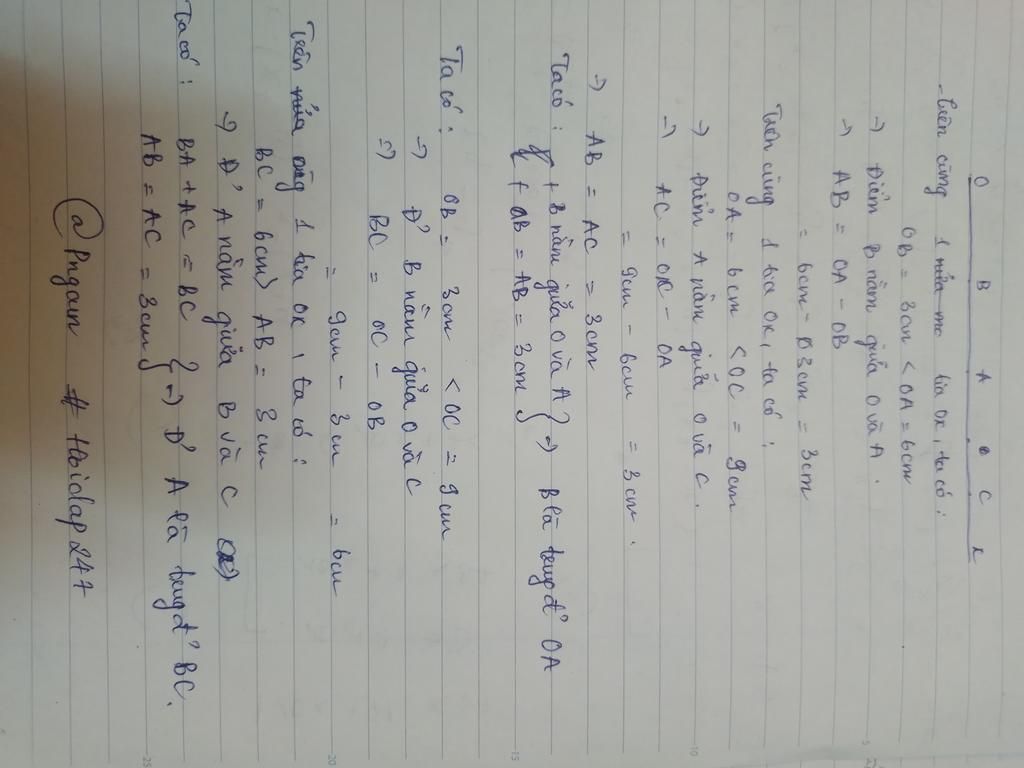 O B A C x
- Trên cùng 1 nửa mo tia Ox, ta có:
OB = 3cm < OA = 6cm
→ Điểm B nằm giữa O và A.
→ AB = OA - OB
= 6cm - 3cm = 3cm
Trên cùng 1 tia Ox, ta có:
OA = 6cm < OC = 9cm
→ Điểm A nằm giữa O và C.
→ AC = OC - OA
= 9cm - 6cm = 3cm.
→ AB = AC = 3cm
Ta có: + B nằm giữa O và A } → B là trung đ' OA
+ OB = AB = 3cm
Ta có: OB = 3cm < OC = 9cm
→ Đ' B nằm giữa O và C
=> BC = OC - OB
= 9cm - 3cm = 6cm
Trên cùng 1 tia Ox, ta có:
BC = 6cm > AB = 3cm
→ Đ' A nằm giữa B và C
Ta có: BA + AC = BC } → Đ' A là trung đ' BC.
AB = AC = 3cm
@Pngam # Hoidap247
5
10
15
20
25